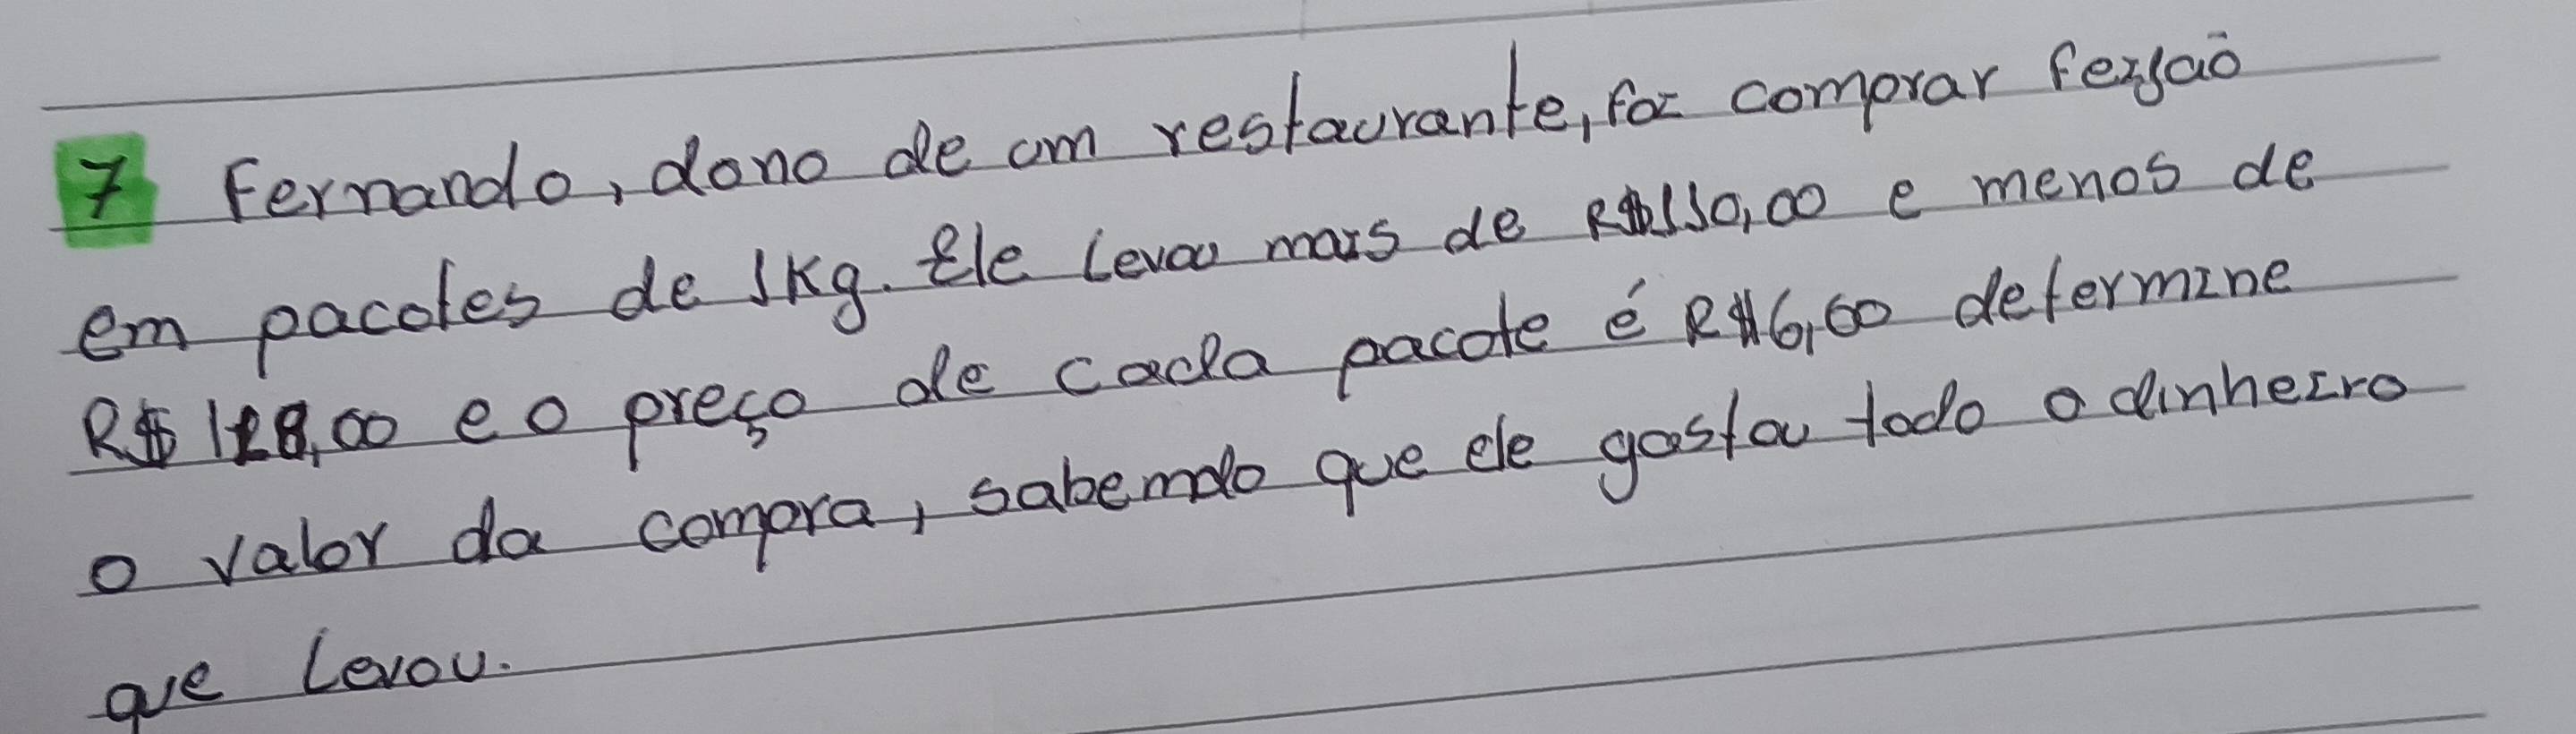 7 Fernando, dono de um restaurante, foi comprar feijão
em pacotes de 1Kg. Ele levou mais de R$110,00 e menos de
R$ 118,00 e o preço de cada pacote é R$6,00 determine
o valor da compra, sabendo que ele gastou todo o dinheiro
que levou.